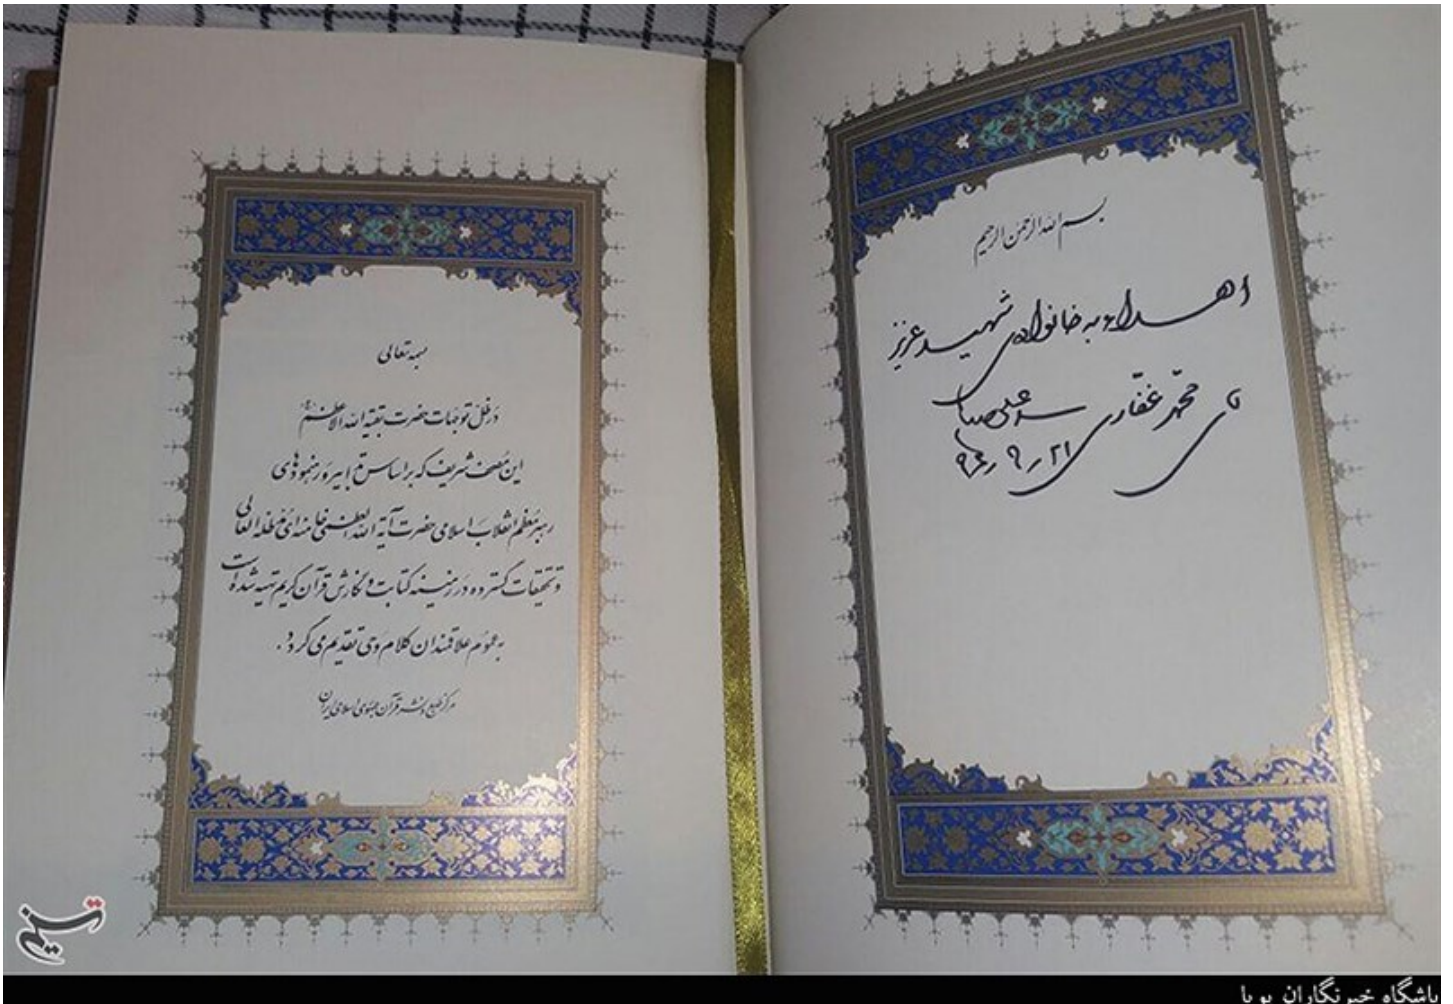 بسم الله الرحمن الرحیم
اهداء به خانواده‌ی شهید عزیز
آقای محمد غفاری سید علی
۹۶٫۹٫۲۱
بسمه تعالی
در ظلّ توجهات حضرت بقیة الله الاعظم
این مصحف شریف که بر اساس تدابیر و رهنمودهای
رهبر معظم انقلاب اسلامی حضرت آیة الله العظمی خامنه‌ای مدظله العالی
و تحقیقات گسترده در زمینه کتابت و نگارش قرآن کریم تهیه شده است
به عموم علاقمندان کلام وحی تقدیم می گردد.
مرکز طبع و نشر قرآن جمهوری اسلامی ایران
تسنیم
باشگاه خبرنگاران پویا